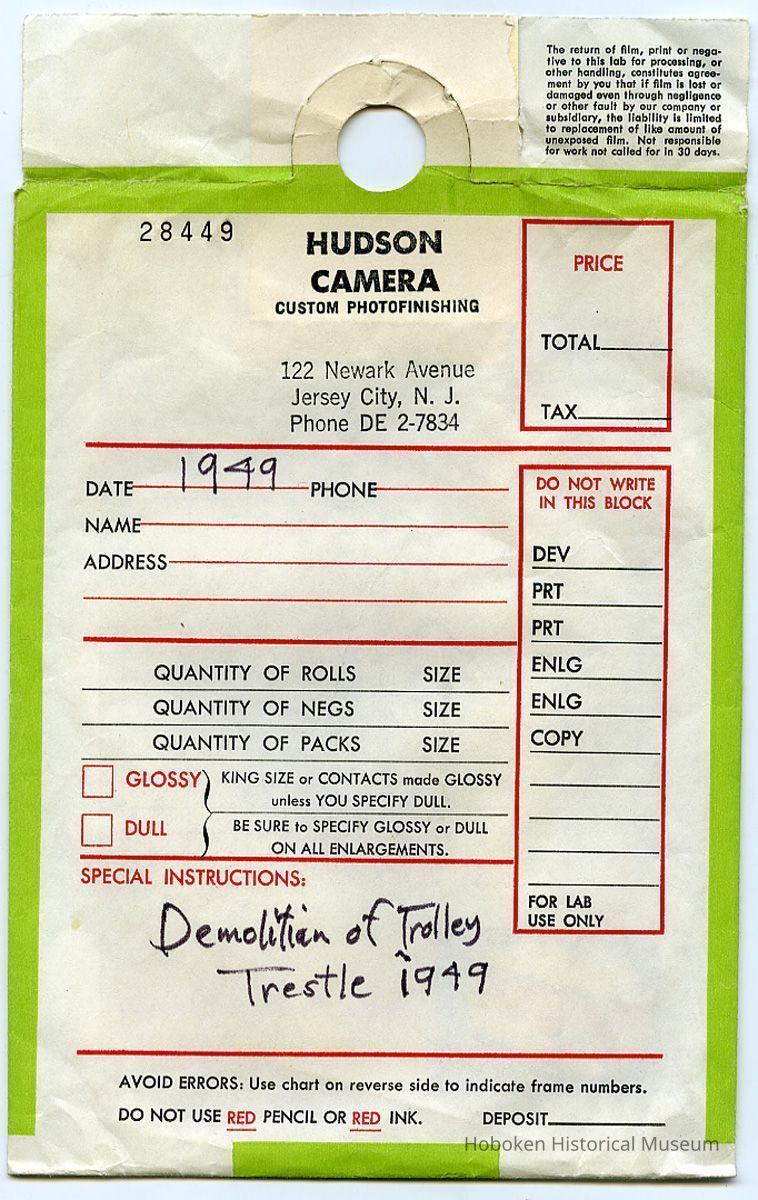 The return of film, print or nega-
tive to this lab for processing, or
other handling, constitutes agree-
ment by you that if film is lost or
damaged even through negligence
or other fault by our company or
subsidiary, the liability is limited
to replacement of like amount of
unexposed film. Not responsible
for work not called for in 30 days.
28449
HUDSON
CAMERA
CUSTOM PHOTOFINISHING
122 Newark Avenue
Jersey City, N. J.
Phone DE 2-7834
PRICE
TOTAL
TAX
DATE 1949 PHONE
NAME
ADDRESS
DO NOT WRITE
IN THIS BLOCK
DEV
PRT
PRT
ENLG
ENLG
COPY
FOR LAB
USE ONLY
QUANTITY OF ROLLS SIZE
QUANTITY OF NEGS SIZE
QUANTITY OF PACKS SIZE
GLOSSY
DULL
KING SIZE or CONTACTS made GLOSSY
unless YOU SPECIFY DULL.
BE SURE to SPECIFY GLOSSY or DULL
ON ALL ENLARGEMENTS.
SPECIAL INSTRUCTIONS:
Demolitian of Trolley
Trestle 1949
AVOID ERRORS: Use chart on reverse side to indicate frame numbers.
DO NOT USE RED PENCIL OR RED INK. DEPOSIT
Hoboken Historical Museum